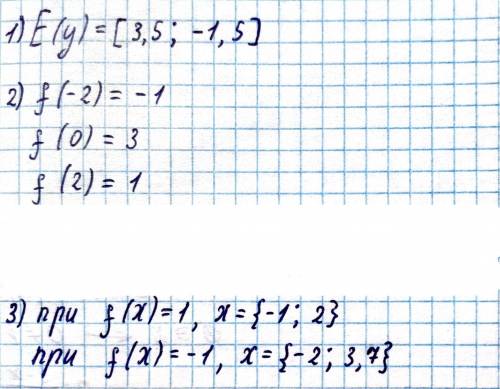 1) E(y) = [3,5; -1,5]
2) f(-2) = -1
f(0) = 3
f(2) = 1
3) при f(x)=1, x={-1; 2}
при f(x)=-1, x={-2; 3,7}